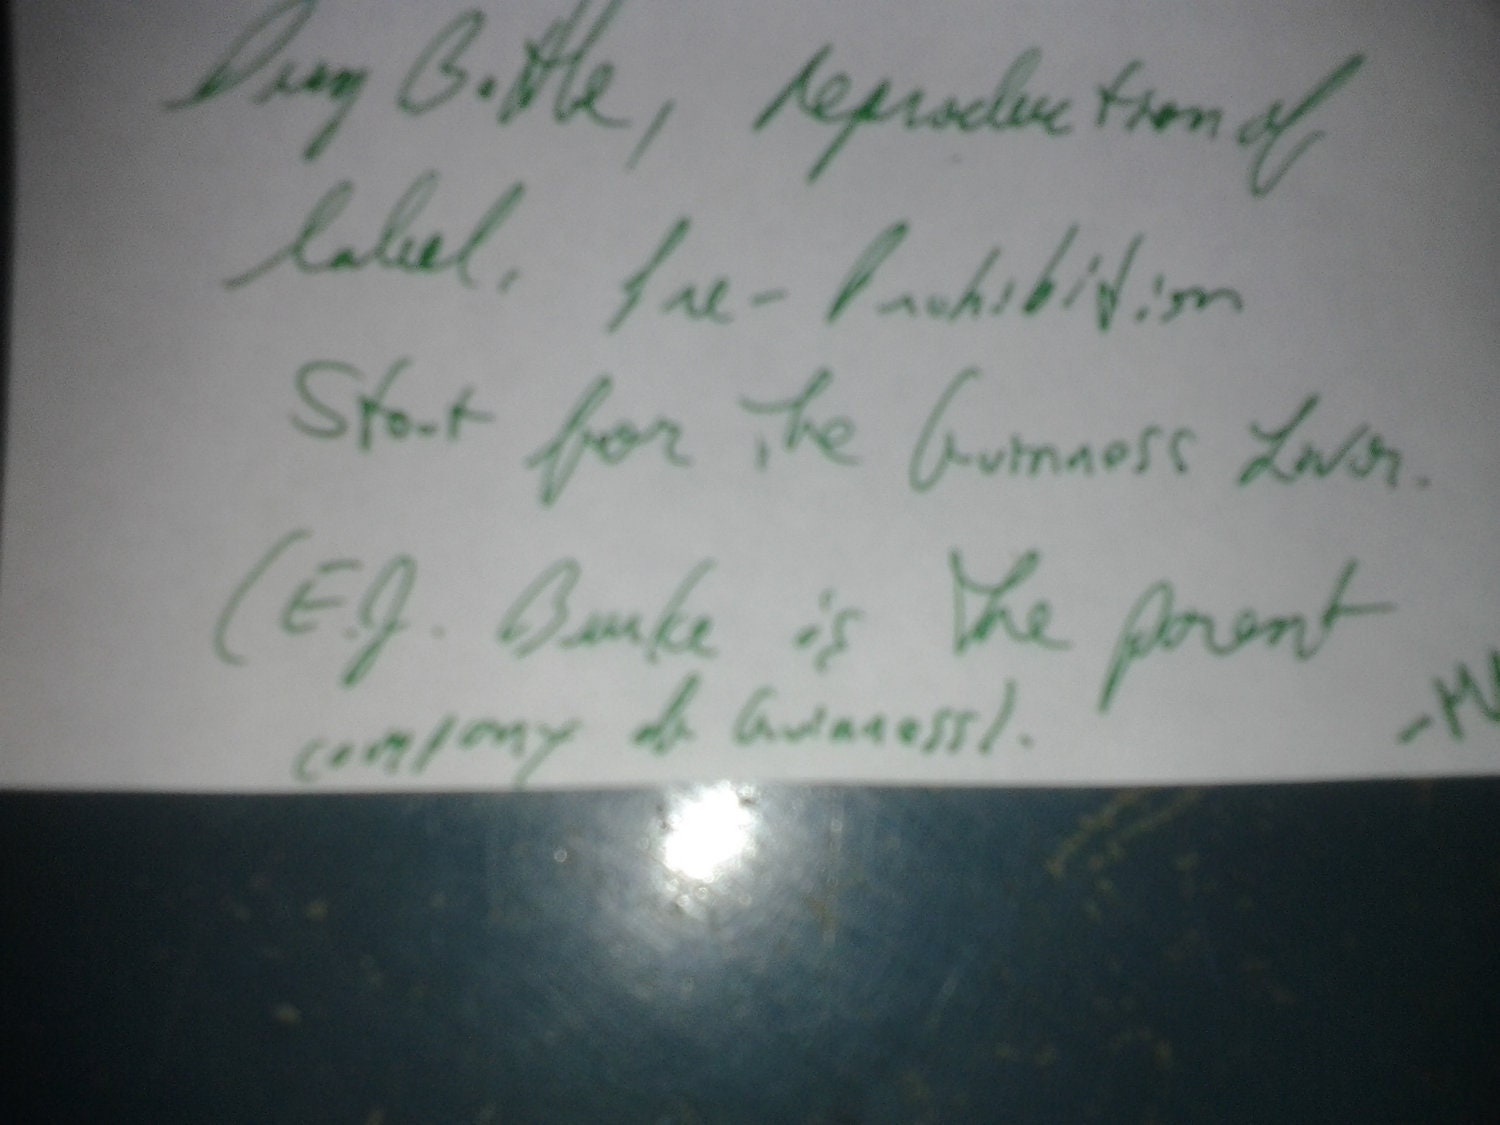 Bottle, reproduction of
label. Pre-Prohibition
Stout for the Guinness Lover.
(E.J. Burke is the parent
company of Guinness).